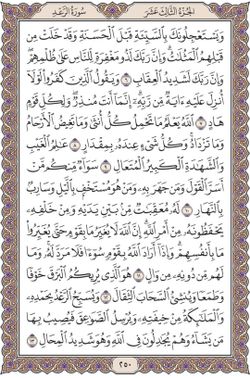 الجزء الثالث عشر
سورة الرعد
وَيَسْتَعْجِلُونَكَ بِالسَّيِّئَةِ قَبْلَ الْحَسَنَةِ وَقَدْ خَلَتْ مِن
قَبْلِهِمُ الْمَثُلَاتُ وَإِنَّ رَبَّكَ لَذُو مَغْفِرَةٍ لِّلنَّاسِ عَلَىٰ ظُلْمِهِمْ
وَإِنَّ رَبَّكَ لَشَدِيدُ الْعِقَابِ ٦ وَيَقُولُ الَّذِينَ كَفَرُوا لَوْلَا
أُنزِلَ عَلَيْهِ آيَةٌ مِّن رَّبِّهِ إِنَّمَا أَنتَ مُنذِرٌ وَلِكُلِّ قَوْمٍ هَادٍ
٧ اللَّهُ يَعْلَمُ مَا تَحْمِلُ كُلُّ أُنثَىٰ وَمَا تَغِيضُ الْأَرْحَامُ
وَمَا تَزْدَادُ وَكُلُّ شَيْءٍ عِندَهُ بِمِقْدَارٍ ٨ عَالِمُ الْغَيْبِ
وَالشَّهَادَةِ الْكَبِيرُ الْمُتَعَالِ ٩ سَوَاءٌ مِّنكُم مَّنْ
أَسَرَّ الْقَوْلَ وَمَن جَهَرَ بِهِ وَمَنْ هُوَ مُسْتَخْفٍ بِاللَّيْلِ وَسَارِبٌ
بِالنَّهَارِ ١٠ لَهُ مُعَقِّبَاتٌ مِّن بَيْنِ يَدَيْهِ وَمِنْ خَلْفِهِ
يَحْفَظُونَهُ مِنْ أَمْرِ اللَّهِ إِنَّ اللَّهَ لَا يُغَيِّرُ مَا بِقَوْمٍ حَتَّىٰ يُغَيِّرُوا
مَا بِأَنفُسِهِمْ وَإِذَا أَرَادَ اللَّهُ بِقَوْمٍ سُوءًا فَلَا مَرَدَّ لَهُ وَمَا
لَهُم مِّن دُونِهِ مِن وَالٍ ١١ هُوَ الَّذِي يُرِيكُمُ الْبَرْقَ خَوْفًا
وَطَمَعًا وَيُنشِئُ السَّحَابَ الثِّقَالَ ١٢ وَيُسَبِّحُ الرَّعْدُ بِحَمْدِهِ
وَالْمَلَائِكَةُ مِنْ خِيفَتِهِ وَيُرْسِلُ الصَّوَاعِقَ فَيُصِيبُ بِهَا
مَن يَشَاءُ وَهُمْ يُجَادِلُونَ فِي اللَّهِ وَهُوَ شَدِيدُ الْمِحَالِ ١٣
٢٥٠